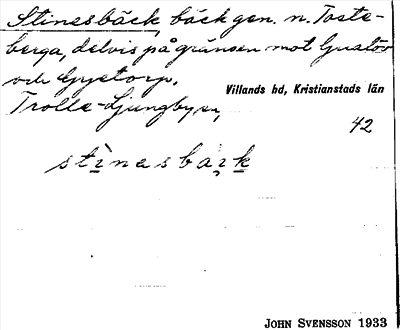 Stinesbäck, bäck gen. n. Toste-
berga, delvis på gränsen mot Gustöv
och Gyetorp.
Villands hd, Kristianstads län
Trolle-Ljungby sn,
42
JOHN SVENSSON 1933